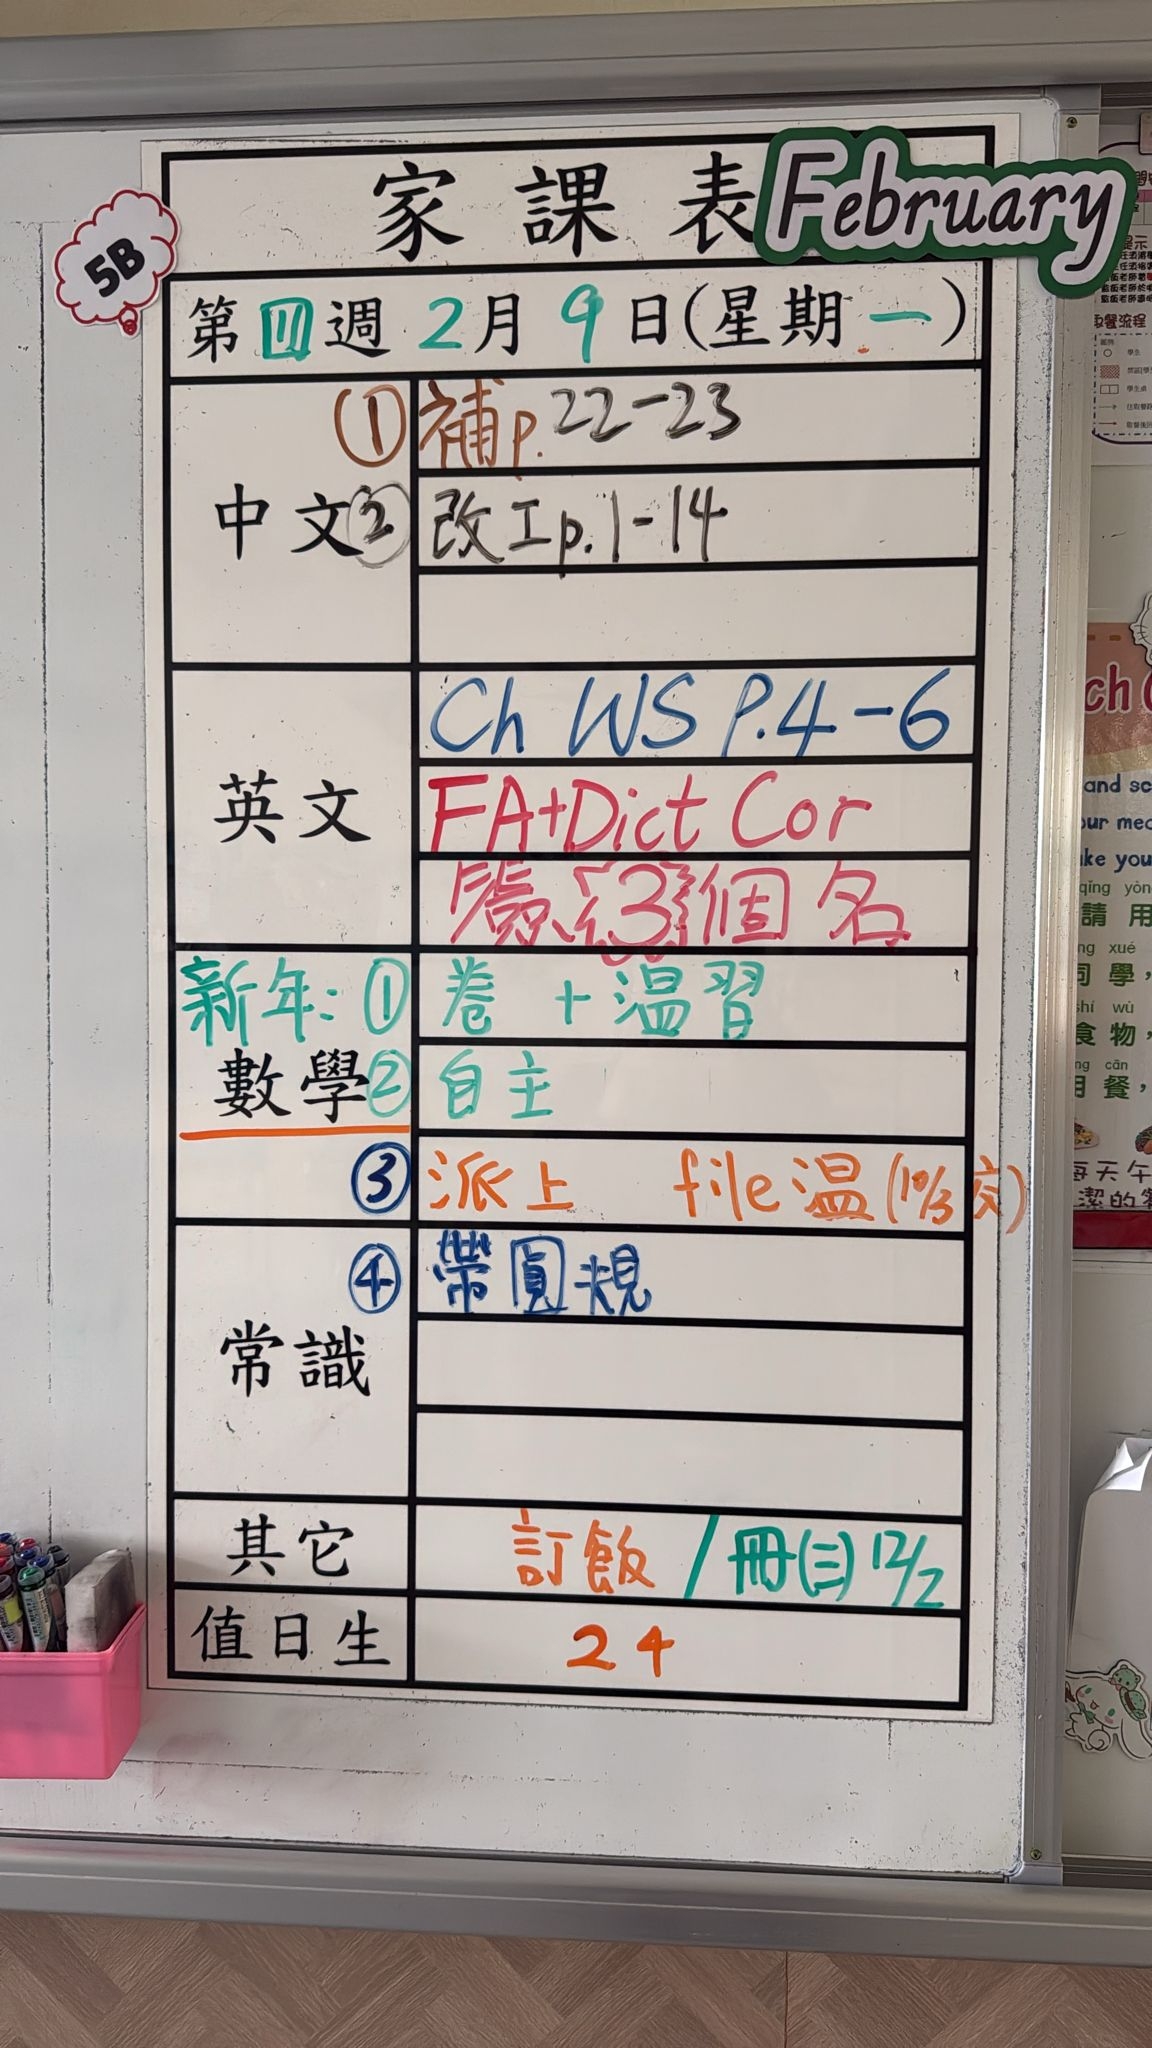 家課表 February
5B
第四週 2月9日(星期一)
① 補p.22-23
中文② 改工p.1-14
Ch WS P.4-6
英文 FA+Dict Cor
3個名
新年:① 卷+温習
數學② 自主
③ 派上 file温(10/3交)
④ 帶圓規
常識
其它 訂飯/冊(三)12/2
值日生 24
學生
ch
and sc
our mea
ke you
qǐng yòn
請用
ng xué
同學,
shí wù
食物,
ng cān
用餐,
每天午
潔的